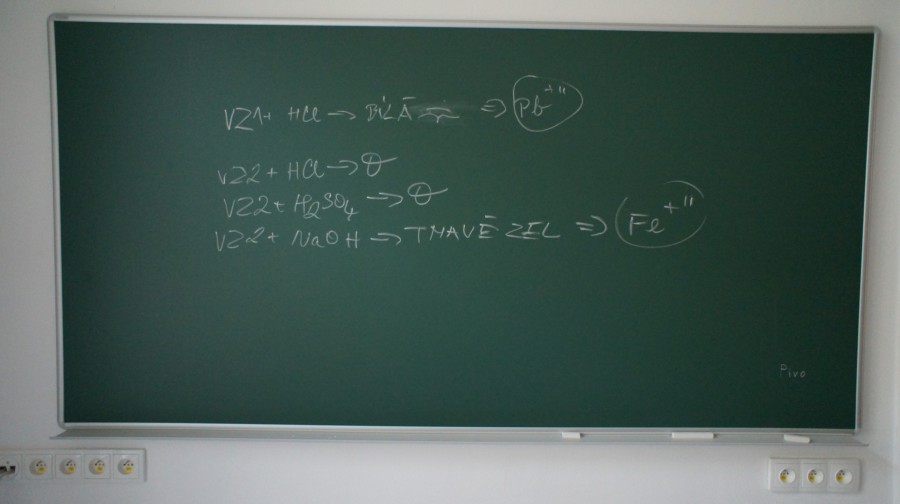 VZ1+ HCl → BÍLÁ ⇒ Pb⁺ᴵᴵ
VZ2 + HCl → ∅
VZ2 + H₂SO₄ → ∅
VZ2 + NaOH → TMAVĚ ZEL ⇒ Fe⁺ᴵᴵ
Pivo